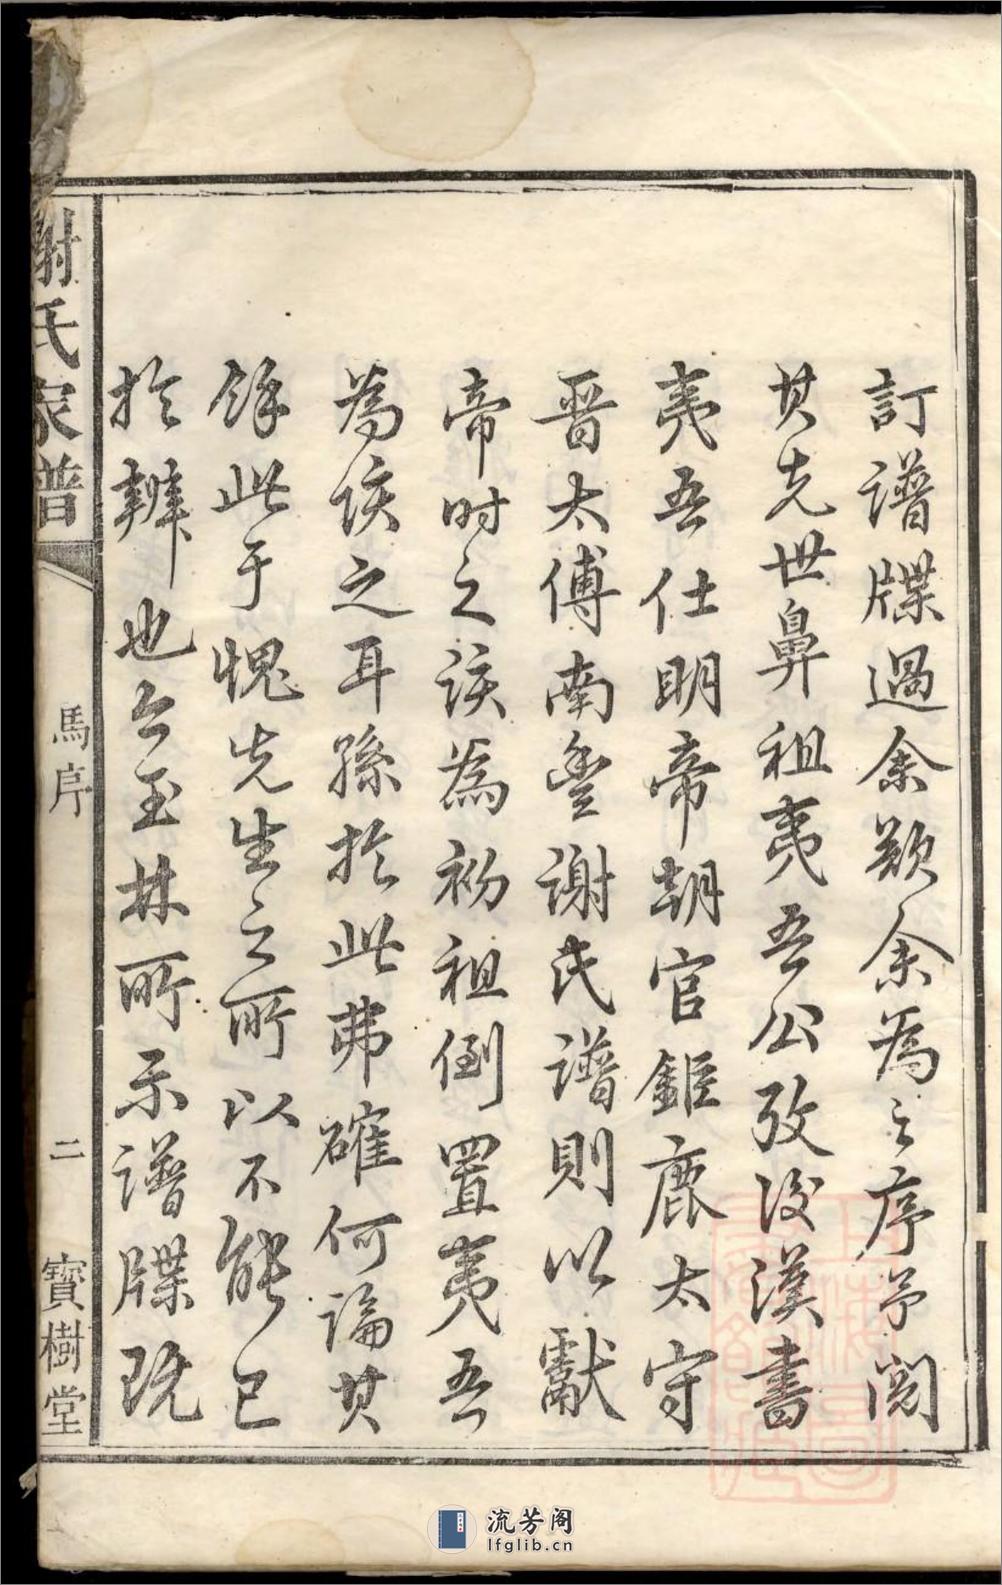 訂譜牒過余欵余為之序予閱
其先世鼻祖夷吾公攷後漢書
夷吾仕明帝朝官鉅鹿太守
晋太傅南豐謝氏譜則以獻
帝時之誤為初祖倒置夷吾
為誤之耳孫於此弗確何論其
餘此于愧先生之所以不能已
於辨也今玉林所示譜牒既
謝氏家譜
馬序
二
寶樹堂
流芳阁
lfglib.cn